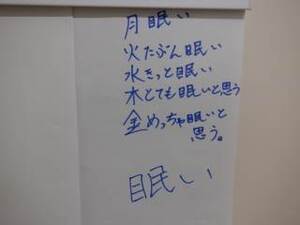 月眠い
火たぶん眠い
水きっと眠い
木とても眠いと思う
金めっちゃ眠いと
思う。
眠い